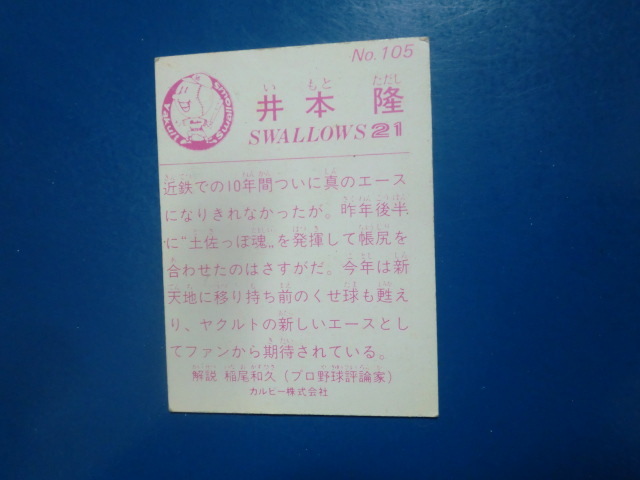 No.105
いもと ただし
井本 隆
Yakult Swallows
SWALLOWS 21
近鉄での10年間ついに真のエース
になりきれなかったが。昨年後半
に"土佐っぽ魂„を発揮して帳尻を
合わせたのはさすがだ。今年は新
天地に移り持ち前のくせ球も甦え
り、ヤクルトの新しいエースとし
てファンから期待されている。
解説 稲尾和久(プロ野球評論家)
カルビー株式会社